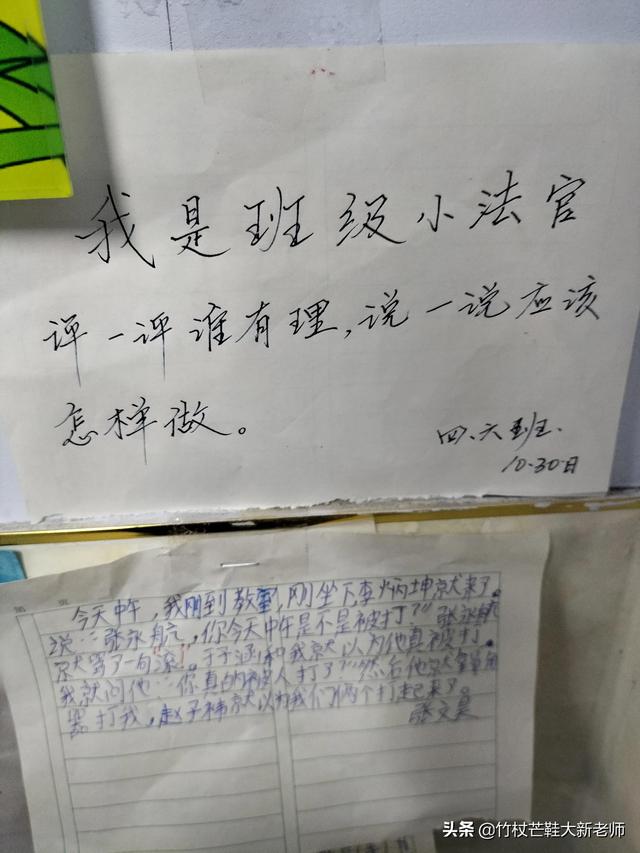 我是班级小法官
评一评谁有理,说一说应该
怎样做。
四.六班.
10.30日
今天中午,我刚到教室,刚坐下李炳坤就来了。
说:"张永航,你今天中午是不是被打?"张永航
就骂了一句"滚"。于子涵和我就以为他真被打.
我就问他:"你真的被人打了"然后他就拿
打我,赵子祎就以为我们俩个打起来了。
张文昊
头条 @竹杖芒鞋大新老师